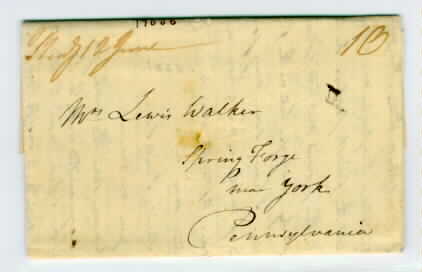 17000
12 June
10
Mrs Lewis Walker
Spring Forge
near York
Pennsylvania